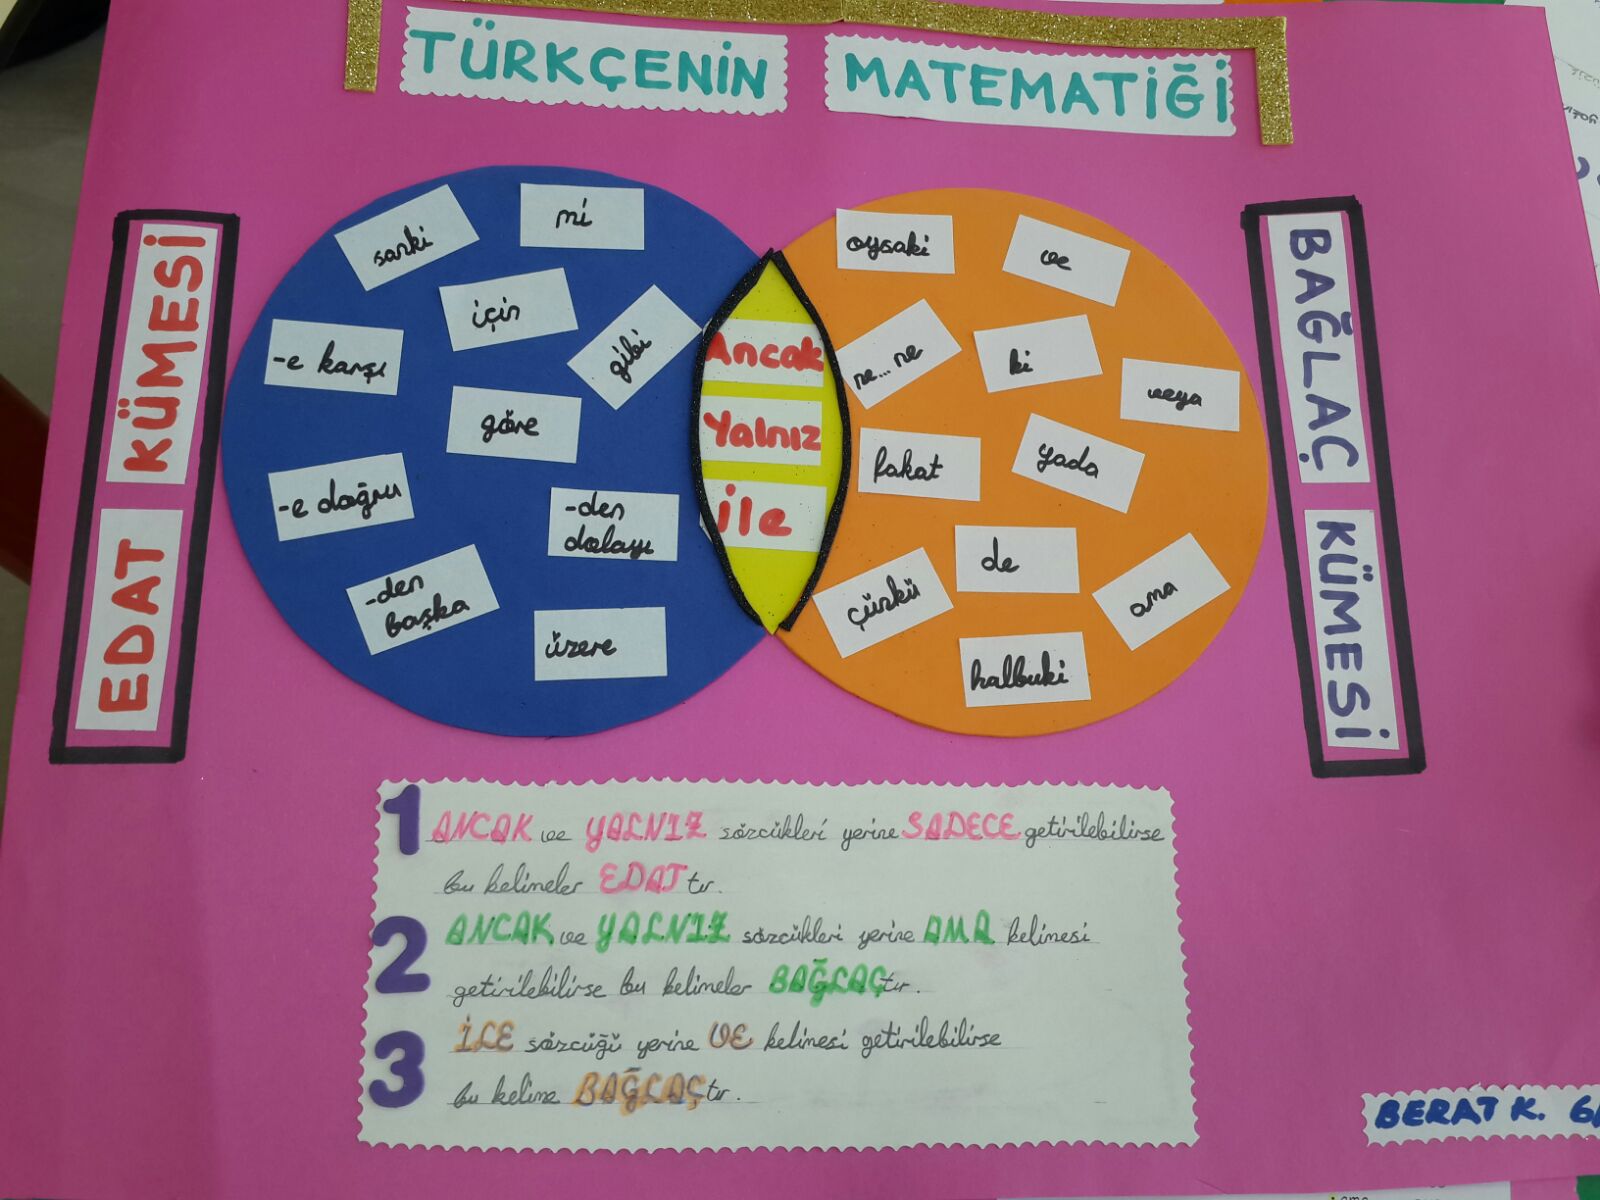 TÜRKÇENİN MATEMATİĞİ
EDAT KÜMESİ
sanki
mi
için
gibi
-e karşı
göre
-e doğru
-den
dolayı
-den
başka
üzere
Ancak
Yalnız
ile
oysaki
ve
ne...ne
ki
veya
fakat
yada
de
çünkü
ama
halbuki
BAĞLAÇ KÜMESİ
1 ANCAK ve YALNIZ sözcükleri yerine SADECE getirilebilirse
bu kelimeler EDAT tır.
2 ANCAK ve YALNIZ sözcükleri yerine AMA kelimesi
getirilebilirse bu kelimeler BAĞLAÇtır.
3 İLE sözcüğü yerine VE kelimesi getirilebilirse
bu kelime BAĞLAÇtır.
BERAT K.